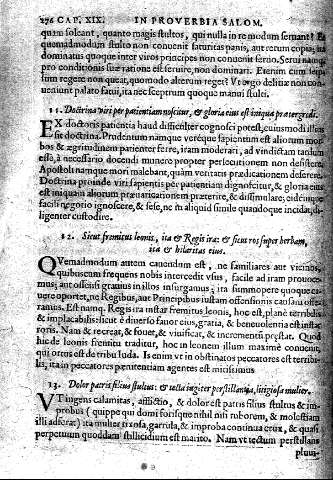 276 CAP. XIX. IN PROVERBIA SALOM.
quam soleant, quanto magis stultos, qui nulla in re modum seruant? Et
quemadmodum stulto non conuenit saturitas panis, aut rerum copia, ita
dominatus quoque inter viros principes non conuenit seruo. Serui namq;
pro conditionis suæ ratione est seruire, non dominari. Etenim cum ipsum
regere non queat, quomodo alterum reget? Vt ergo delitiæ non con-
ueniunt palato fatui, ita nec sceptrum quoque manui stulti.
11. Doctrina viri per patientiam noscitur, & gloria eius est iniqua prætergredi.
EX doctoris patientia haud difficulter cognosci potest, cuiusmodi illius
sit doctrina. Prudentum namque veréque sapientum est aliorum mor-
bos & ægritudinem patienter ferre, iram moderari, ad vindictam tardum
esse, à necessario docendi munere propter persecutionem non desistere.
Apostoli namque mori malebant, quàm veritatis prædicationem deserere.
Doctrina proinde viri sapientis per patientiam dignoscitur, & gloria eius
est iniquam aliorum præuaricationem præterire, & dissimulare; eidémque
facili negotio ignoscere, & sese, ne in aliquid simile quandoque incidat, di-
ligenter custodire.
12. Sicut fremitus leonis, ita & Regis ira: & sicut ros super herbam,
ita & hilaritas eius.
QVemadmodum autem cauendum est, ne familiares aut vicinos,
quibuscum frequens nobis intercedit vsus, facile ad iram prouoce-
mus, aut offensi grauius in illos insurgamus; ita summopere quoque ca-
uere oportet, ne Regibus, aut Principibus iustam offensionis causam offe-
ramus. Est namq. Regis ira instar fremitus leonis, hoc est, planè terribilis
& implacabilis: sicut è diuerso fauor eius, gratia, & beneuolentia est instar
roris. Nam & recreat, & fouet, & viuificat, & incrementi præstat. Quod
hic de leonis fremitu traditur, hoc in leonem illum maximè conuenit,
qui ortus est de tribu Iuda. Is enim vt in obstinatos peccatores est terribi-
lis, ita in peccatores pœnitentiam agentes est mitissimus
13. Dolor patris filius stultus: & tecta iugiter perstillantia, litigiosa mulier.
VT ingens calamitas, afflictio, & dolor est patris filius stultus & im-
probus (quippe qui domi forisque nihil nisi ruborem, & molestiam
illi adferat) ita mulier rixosa, garrula, & improba continua crux, & quasi
perpetuum quoddam stillicidium est marito. Nam vt tectum perstillans
pluuij-